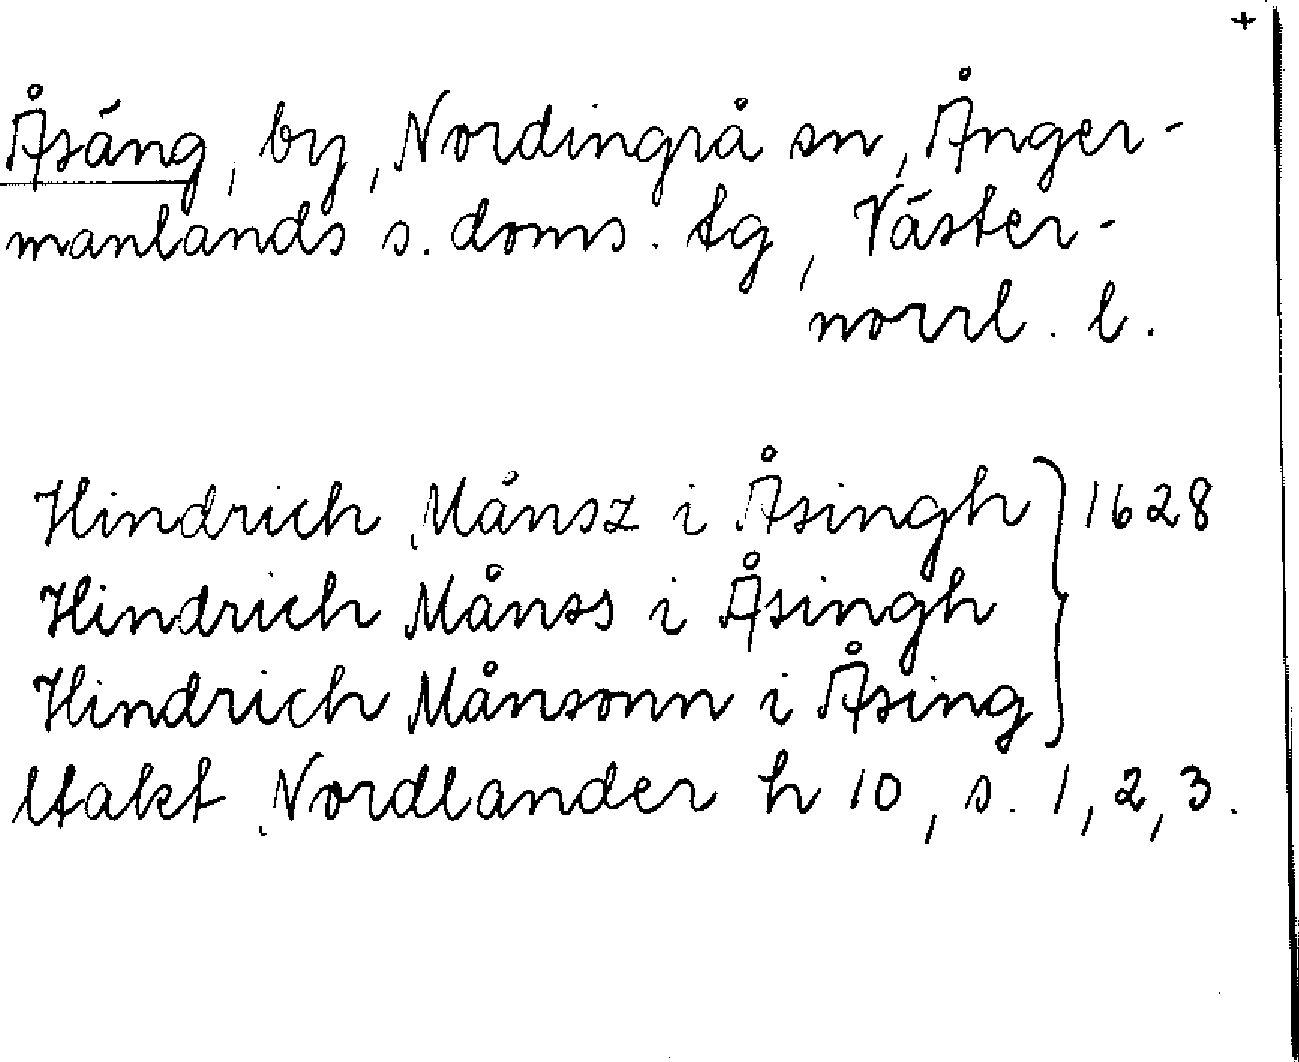 +
Åsäng, by, Nordingrå sn, Ånger-
manlands s. doms. tg, Väster-
norrl. l.
Hindrich Månsz i Åsingh } 1628
Hindrich Månss i Åsingh
Hindrich Månsonn i Åsing
Utakt Nordlander h 10, s. 1, 2, 3.